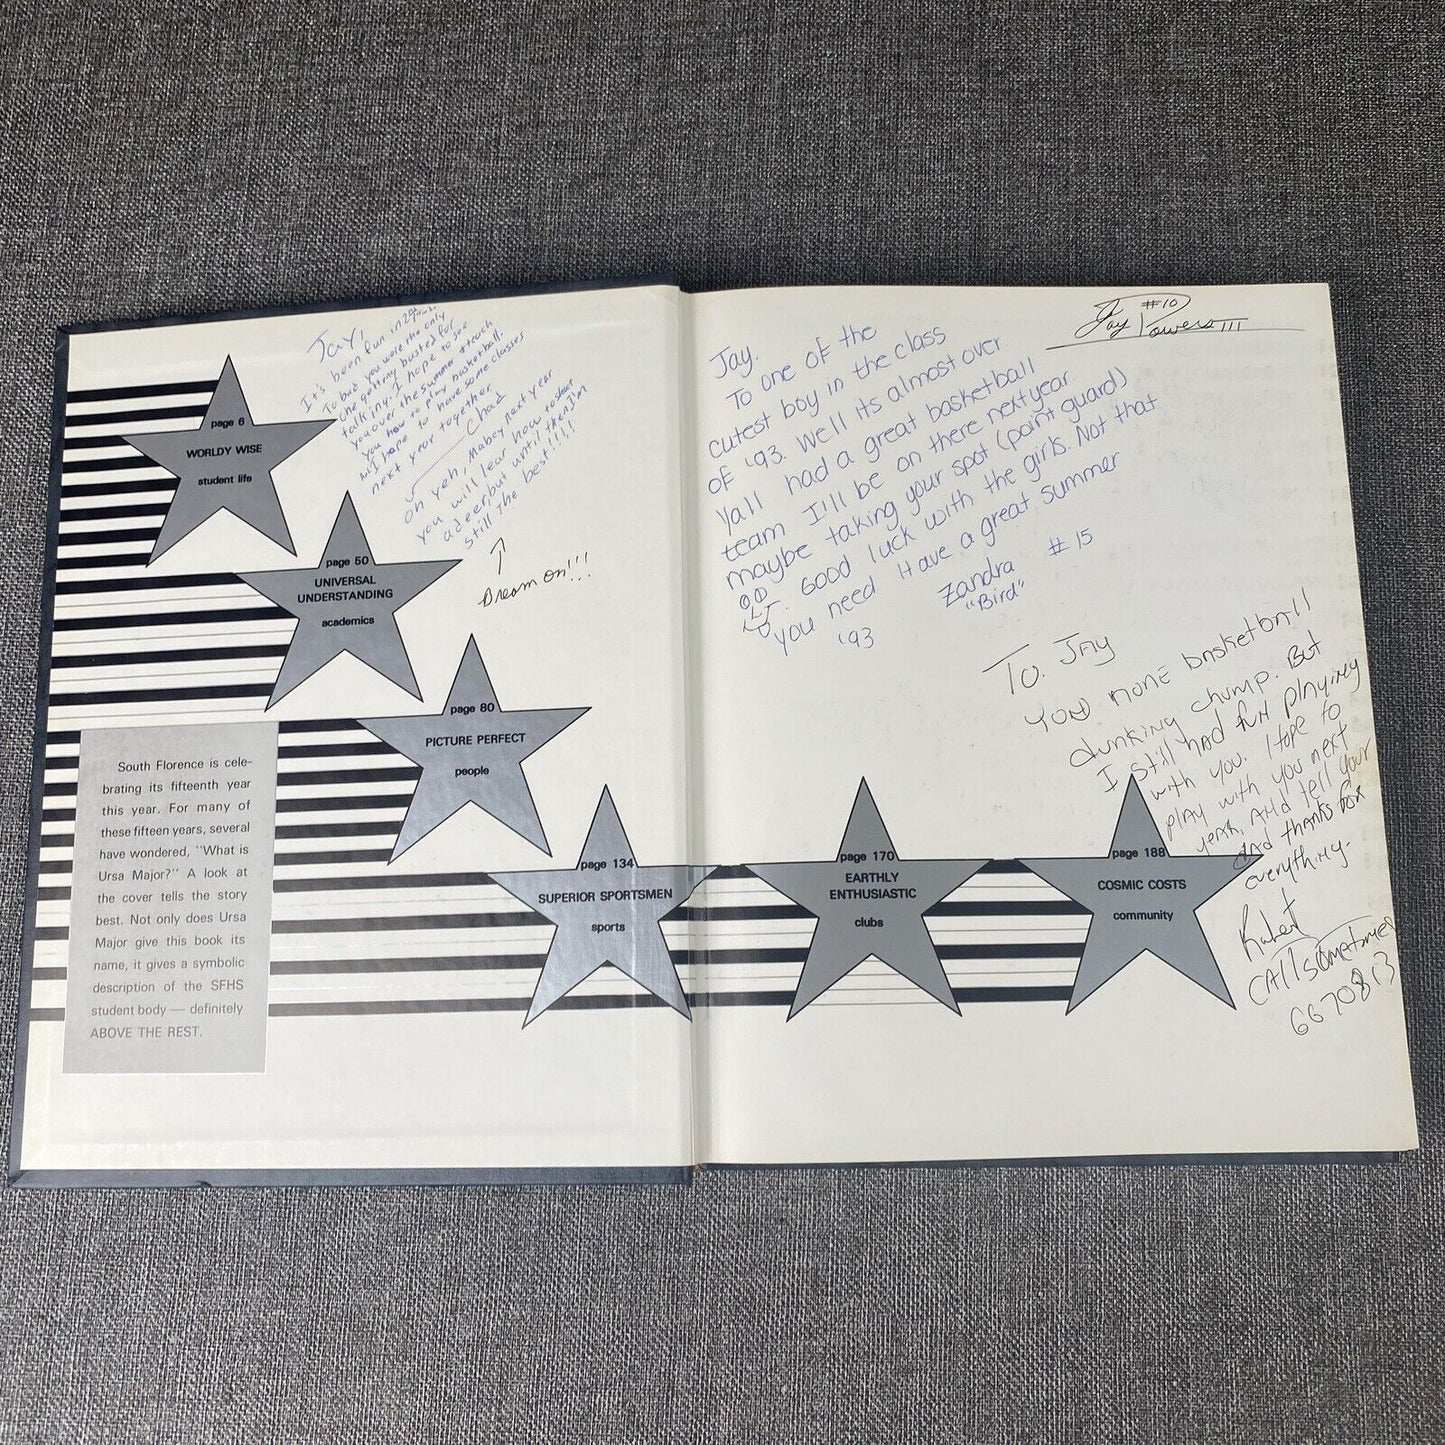 Jay,
It's been fun in 2nd
To bad you were the only
one getting busted for
talking. I hope to see
you over the summer & teach
you how to play basketball.
I hope to have some classes
next year together
Chad
oh yeh, Mabey next year
you will lear how to shoot
a deer, but until then I'm
still the best!!!!!
Dream on!!!
page 6
WORLDY WISE
student life
page 50
UNIVERSAL
UNDERSTANDING
academics
page 80
PICTURE PERFECT
people
South Florence is cele-
brating its fifteenth year
this year. For many of
these fifteen years, several
have wondered, "What is
Ursa Major?" A look at
the cover tells the story
best. Not only does Ursa
Major give this book its
name, it gives a symbolic
description of the SFHS
student body — definitely
ABOVE THE REST.
page 134
SUPERIOR SPORTSMEN
sports
#10
Jay Powers III
Jay.
To one of the
cutest boy in the class
OF '93. Well its almost over
Yall had a great basketball
team I'll be on there next year
maybe taking your spot (point guard)
Good luck with the girls. Not that
you need it. Have a great summer
'93
Zandra #15
"Bird"
To. Jay
You none basketball
dunking chump. But
I still had fun playing
with you. Hope to
play with you next
yeah, And tell your
dad thanks for
everything-
Robert
Call sometimes
6670813
page 170
EARTHLY
ENTHUSIASTIC
clubs
page 188
COSMIC COSTS
community